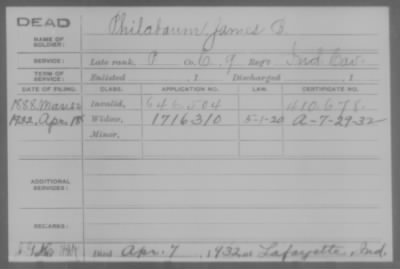 DEAD
NAME OF SOLDIER: Philabaum, James B.
SERVICE: Late rank, P Co. C, 9 Reg't Ind Cav.
TERM OF SERVICE: Enlisted , 1 Discharged , 1
DATE OF FILING. CLASS. APPLICATION NO. LAW. CERTIFICATE NO.
1888 Mar Invalid, 646,504 410,678.
1932, Apr. 18 Widow, 1716310 5-1-20 A-7-29-32
Minor,
ADDITIONAL SERVICES:
REMARKS:
Died Apr. 7, 1932 at Lafayette, Ind.